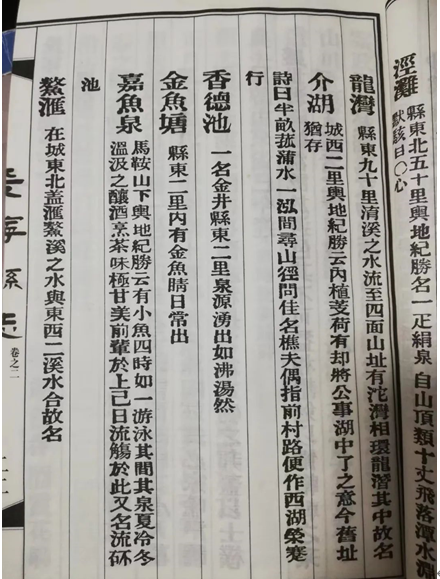 涇灘 縣東北五十里輿地紀勝名一疋絹泉自山頂類十丈飛落潭水
默該日〇心
龍灣 縣東九十里淯溪之水流至四面山址有沱灣相環龍潛其中故名
介湖 城西二里輿地紀勝云內植芰荷有却將公事湖中了之意今舊址
猶存
詩曰半畝菰蒲水一泓間尋山徑問住名樵夫偶指前村路便作西湖榮蹇
行
香德池 一名金井縣東二里泉源湧出如沸湯然
金魚塘 縣東二里內有金魚晴日常出
嘉魚泉 馬鞍山下輿地紀勝云有小魚四時如一游泳其間其泉夏冷冬
溫汲之釀酒烹茶味極甘美前輩於上巳日流觴於此又名流杯
池
鰲滙 在城東北蓋滙鰲溪之水與東西二溪水合故名
長寧縣志
卷之二